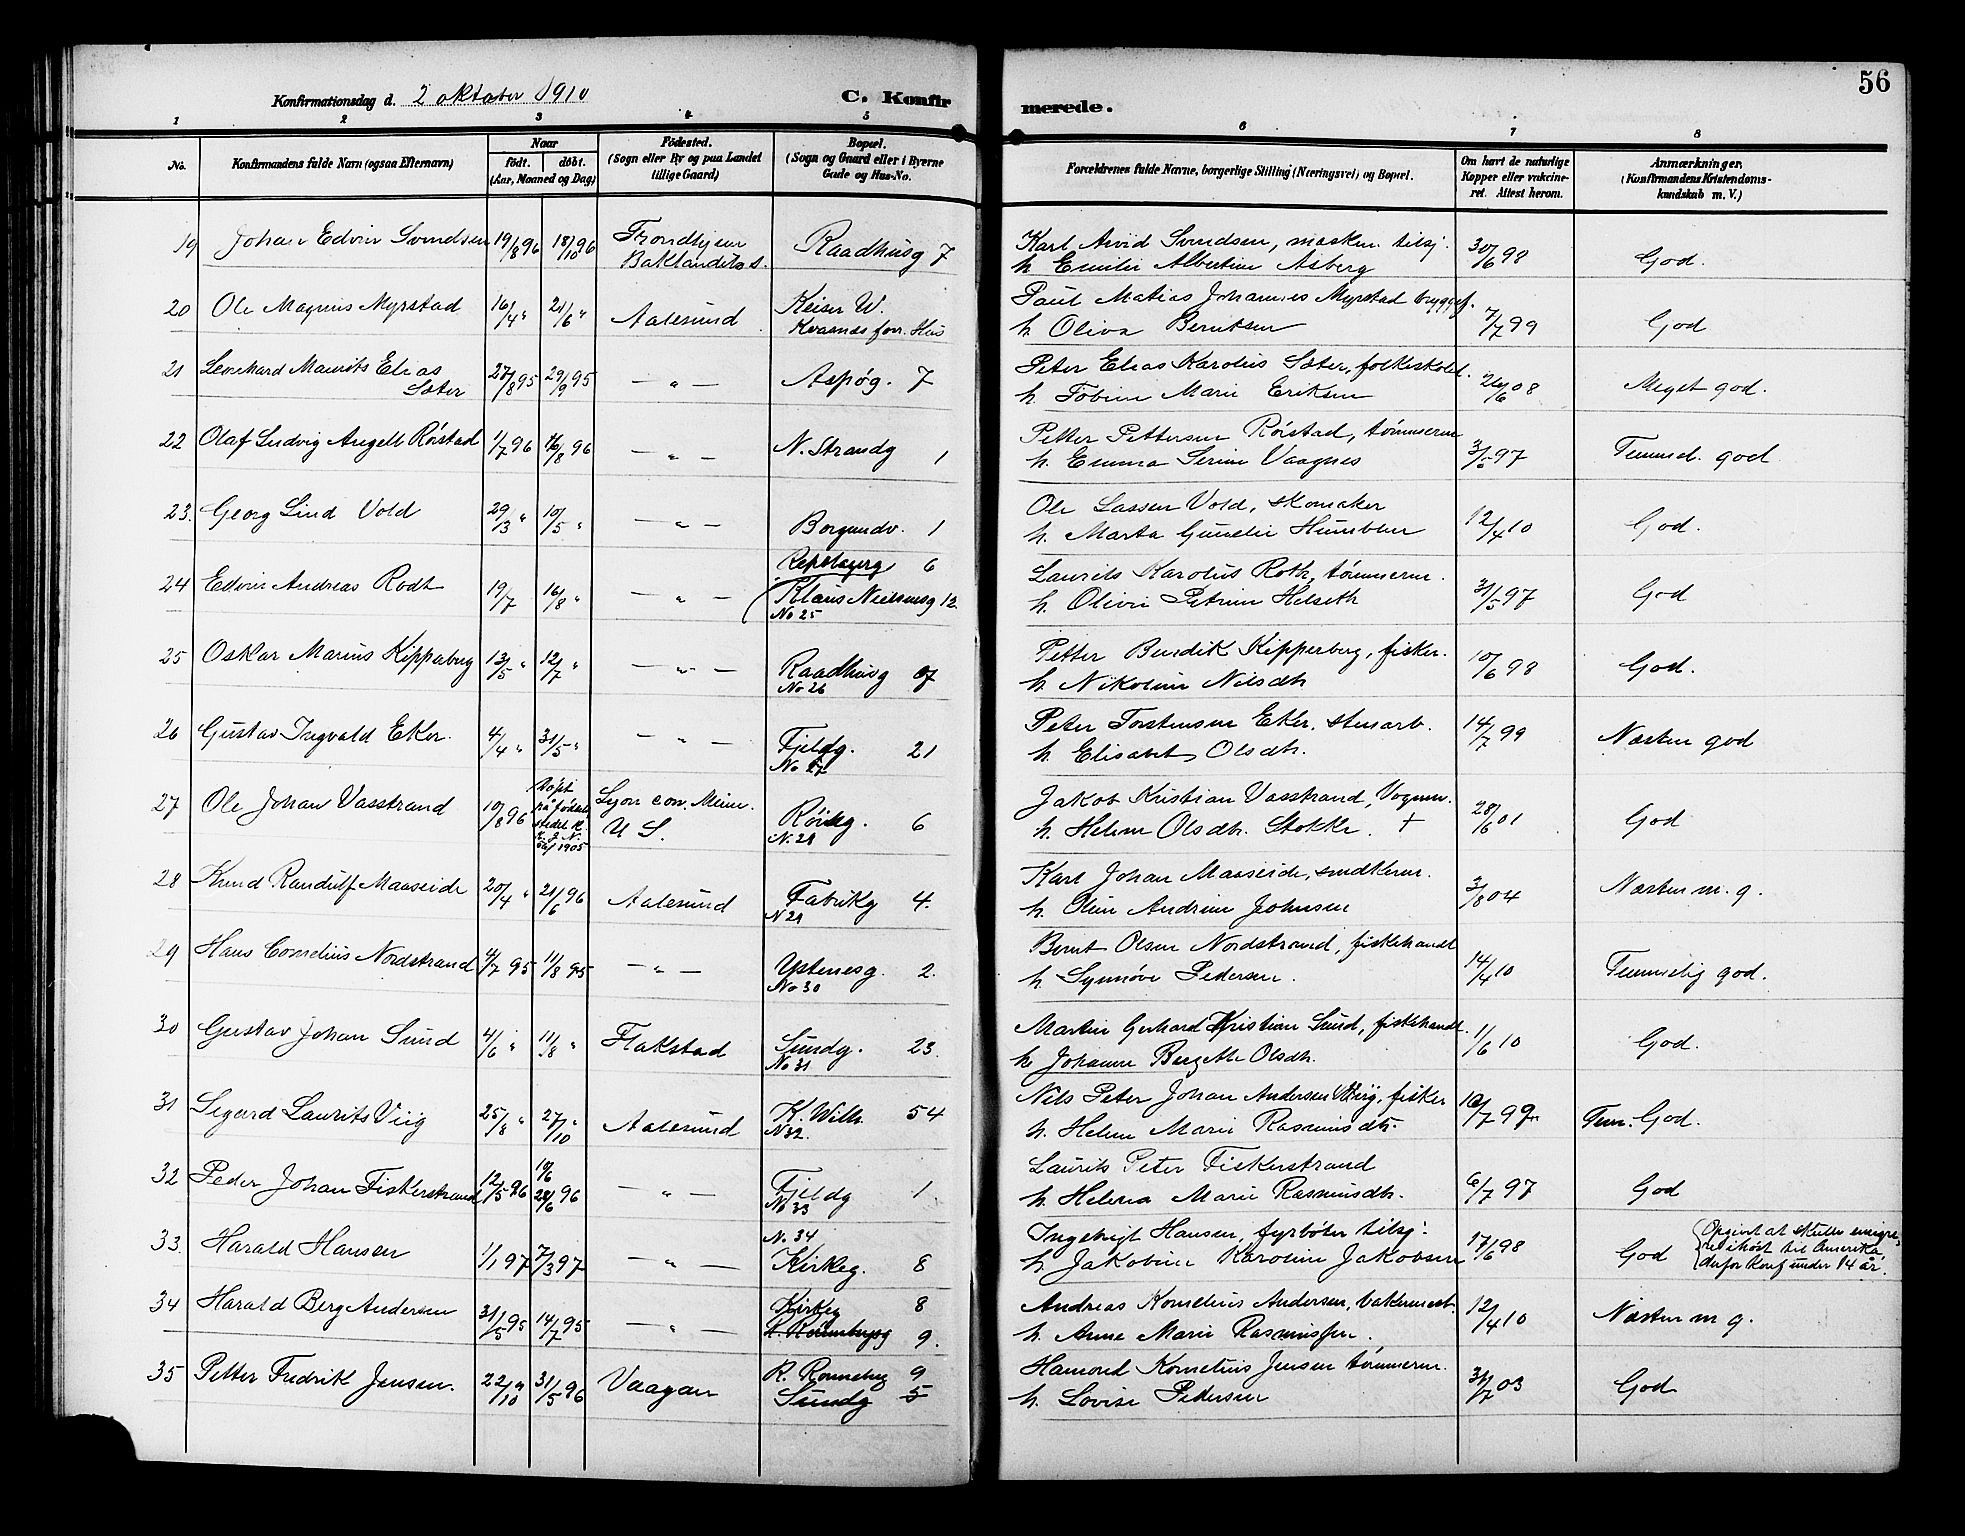 56
Konfirmationsdag d. 2 oktober 1910 C. Konfir merede.
1 2 3 4 5 6 7 8
No. Konfirmandens fulde Navn (ogsaa Efternavn) Naar født. døbt. (Aar, Maaned og Dag) Fødested. (Sogn eller By og paa Landet tillige Gaard) Bopæl. (Sogn og Gaard eller i Byerne Gade og Hus-No. Forældrenes fulde Navne, borgerlige Stilling (Næringsvei) og Bopæl. Om havt de naturlige Kopper eller vaccineret. Attest herom. Anmærkninger. (Konfirmandens Kristendomskundskab m. V.)
19 Johan Edvin Svendsen 19/8 96 18/10 96 Trondhjem Baklandets s. Raadhusg 7 Karl Arvid Svendsen, maskin. tilsj. God.
h. Emilie Albertine Asberg 30/6 98
20 Ole Magnus Myrstad 16/4 " 21/6 " Aalesund Keiser W. Paul Matias Johannes Myrstad bryggef. 7/7 99 God
Kvasnes forr. Hus h. Oliva Berntsen
21 Lenchard Maurits Elias Sæter 27/8 95 29/9 95 — " — Aspøg. 7 Peter Elias Karolus Sæter, folkeskolel. Meget god.
h. Tobine Marie Eriksen 24/6 08
22 Olaf Ludvig Angell Røistad 1/7 96 16/8 96 — " — N. Strandg 1 Petter Pettersen Røistad, tømmerm 3/5 97 Temmel. god
h. Emma Serine Vaagnes
23. Georg Lind Vold 29/13 " 10/5 " — " — Borgundv. 1 Ole Lassen Vold, skomaker 12/4 10 God.
h. Marta Gunelie Humblen
24 Edvin Andreas Rodt 19/7 16/8 " — " — Repslagerg 6 Laurits Karolus Roth, tømmerm. 31/5 97 God
(Klaus Nielsensg 12 h. Olivie Petrine Helseth
No 25
25 Oskar Marius Kipperberg 13/5 " 12/7 " — " — Raadhusg 7 Petter Bendik Kipperberg, fisker. 10/6 98 God.
No 26 h. Nikoline Nilsdtr
26 Gustav Ingvald Eker. 4/4 " 31/5 " — " — Fjeldg. 21 Peter Torstensen Eker, stenarb. 14/7 99 Næsten god
No 27 h. Elisabet Olsdtr.
27 Ole Johan Vasstrand 10/8 96 Lyon con. Minn. U S. Røisg. 6 Jakob Kristian Vasstrand, Vognm. 28/6 01 God
N. 28 h. Helene Olsdtr. Stokke. †
28 Knud Randulf Maaseide 20/4 " 21/6 96 Aalesund Fabrikg 4. Karl Johan Maaseide, snedkerm. 3/8 04 Næsten m. g.
N 29 h. Oline Andrine Johnsen
29 Hans Cornelius Nordstrand 4/7 95 11/8 95 — " — Ystenesg. 2. Bernt Olsen Nordstrand, fiskehandl 14/4 10 Temmelig god.
No 30 h Synnøve Pedersen.
30 Gustav Johan Sund 4/6 " 11/8 " Flakstad Sundg. 23. Martin Gerhard Kristian Sund, fiskehandl. 1/6 10 God.
No 31 h Johanne Bergethe Olsdtr.
31 Sigurd Laurits Viig 25/8 " 27/10 " Aalesund K. Wilh. 54 Nils Peter Johan Andersen Viig, fisker Tem. God.
N 32. h. Helene Marie Rasmusdtr.
32 Peder Johan Fiskerstrand 12/5 96 28/6 96 — " — Fjeldg 1. Laurits Peter Fiskerstrand 6/7 97 God
No 33 h Helena Marie Rasmusdtr.
33. Harald Hansen 1/1 97 7/3 97 — " — N. 34 Kirkeg. 8 Ingebrigt Hansen, fyrbøter tilsj. 17/6 98 God Opgivet at skulle emigre-
h Jakobine Karoline Jakobsen re i høst til Amerika,
derfor konf under 14 år.
34 Harald Berg Andersen 31/5 95 14/7 95 — " — Kirkeg 8 Andreas Kornelius Andersen, bakermest. 12/4 10 Næsten m g.
R. Rønnebergsg 9. h. Anne Marie Rasmussen.
35 Petter Fredrik Jensen. 22/10 " 31/5 96 Vaagan R. Ronneberg 9 Hamond Kornelius Jensen tømmerm. God
Sundg 5 h. Lovise Pedersen 31/7 03